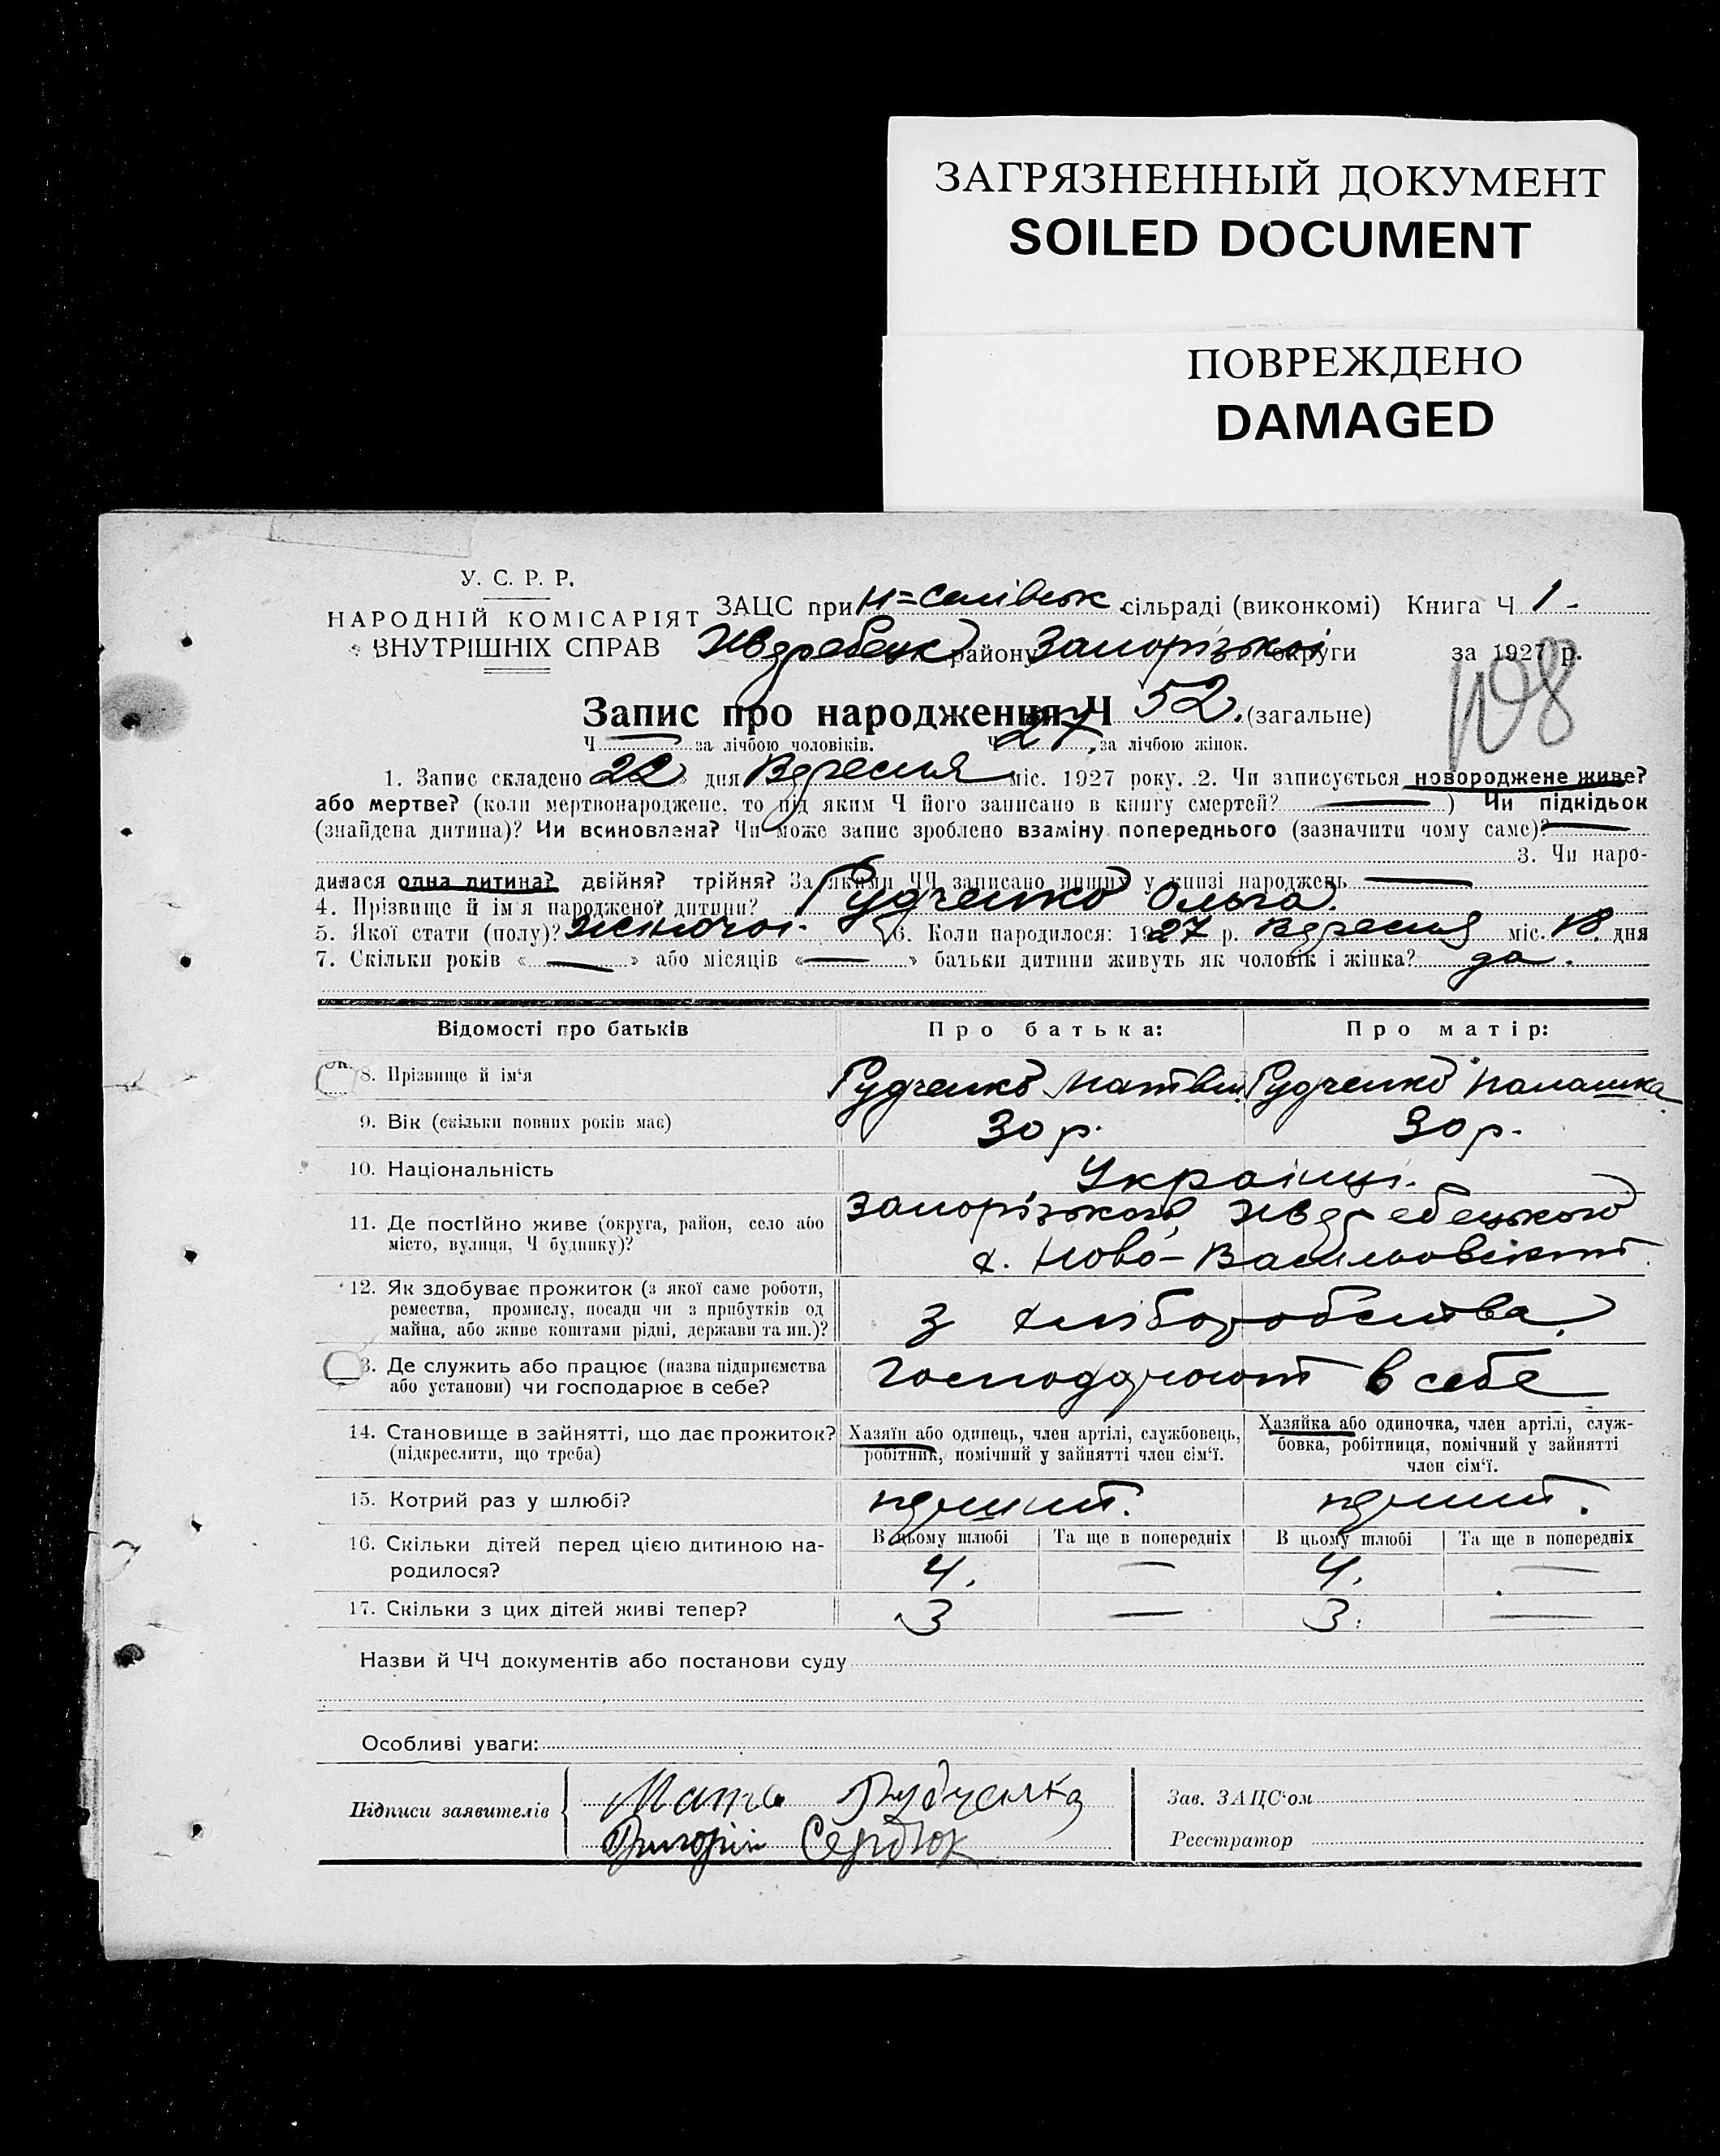 ЗАГРЯЗНЕННЫЙ ДОКУМЕНТ
SOILED DOCUMENT
ПОВРЕЖДЕНО
DAMAGED
У. С. Р. Р.
НАРОДНІЙ КОМІСАРІЯТ
ВНУТРІШНІХ СПРАВ
ЗАЦС при сільраді (виконкомі) Книга Ч 1.
району Запорізькоі округи за 1927 р.
108
Запис про народження Ч 52. (загальне)
Ч за лічбою чоловіків. Ч 27. за лічбою жінок.
1. Запис складено 22 дня Вересня міс. 1927 року. 2. Чи записується новороджене живе?
або мертве? (коли мертвонароджене, то під яким Ч його записано в книгу смертей? —) Чи підкідьок
(знайдена дитина)? Чи всиновлена? Чи може запис зроблено взаміну попереднього (зазначити чому саме)? —
3. Чи наро-
дилася одна дитина? двійня? трійня? За якими ЧЧ записано инших у книзі народжень —
4. Прізвище й ім'я народженої дитини? Рудченко Ольга.
5. Якої стати (полу)? Жіночоі. 6. Коли народилося: 1927 р. Вересня міс. 18. дня
7. Скільки років « — » або місяців « — » батьки дитини живуть як чоловік і жінка? да.
Відомості про батьків
Про батька:
Про матір:
8. Прізвище й ім'я Рудченко Матвій Рудченко Палашка
9. Вік (скільки повних років має) 30 р. 30 р.
10. Національність Украінці.
11. Де постійно живе (округа, район, село або
місто, вулиця, Ч будинку)?
Запорізькоі
х. Ново-
12. Як здобуває прожиток (з якої саме роботи,
ремества, промислу, посади чи з прибутків од
майна, або живе коштами рідні, держави та ин.)?
з хліборобства.
13. Де служить або працює (назва підприємства
або установи) чи господарює в себе?
господарюют в себе
14. Становище в зайнятті, що дає прожиток?
(підкреслити, що треба)
Хазяїн або одинець, член артілі, службовець,
робітник, помічний у зайнятті член сім'ї.
Хазяйка або одиночка, член артілі, служ-
бовка, робітниця, помічний у зайнятті
член сім'ї.
15. Котрий раз у шлюбі?
16. Скільки дітей перед цією дитиною на-
родилося?
В цьому шлюбі Та ще в попередніх В цьому шлюбі Та ще в попередніх
4. — 4. —
17. Скільки з цих дітей живі тепер? 3 — 3. —
Назви й ЧЧ документів або постанови суду
Особливі уваги:
Підписи заявителів
Рудченко
Григорій Сердюк
Зав. ЗАЦС'ом
Реєстратор